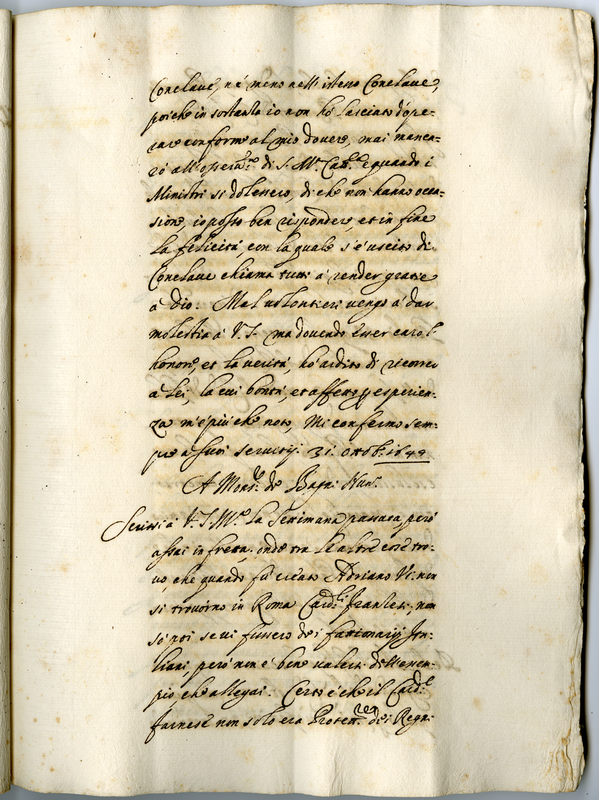 Conclave, nè meno nell'istesso Conclave,
poiche in sostanza io non hò lasciato d'ope-
rare conforme al mio dovere, mai manca-
rò all'osseru.ᵃ di S. M. Catt.ᶜᵃ e quando i
Ministri si dolessero, di che non hanno occa-
sione, io posso ben rispondere, et in fine
la felicità, con la quale s'è uscito di
Conclave chiama tutti à render gratie
à Dio. Mal volontieri vengo à dar
molestia à V.S. ma dovendo esser caro l'
honore, et la verità, hò ardito di ricorrer
a lei, la cui bontà, et affetto p esperien-
za m'è più che noto, Mi confermo sem-
pre a suoi servitij. 31. ottob. 1644
A Mons.ʳ de Bagni Nun.º
Scrissi à V.S. la Settimana passata però
assai in fretta, onde tra le altre cose tro-
vo, che quando fù creato Adriano VI. non
si trovorno in Roma Card.ˡⁱ franzesi, non
sò poi se vi fussero de i fattionarij Ita-
liani però non è bene valersi dell'essem-
pio che allegai. Certo è che il Card.ˡᵉ
farnese non solo era Protett.ʳᵉ de i Regni